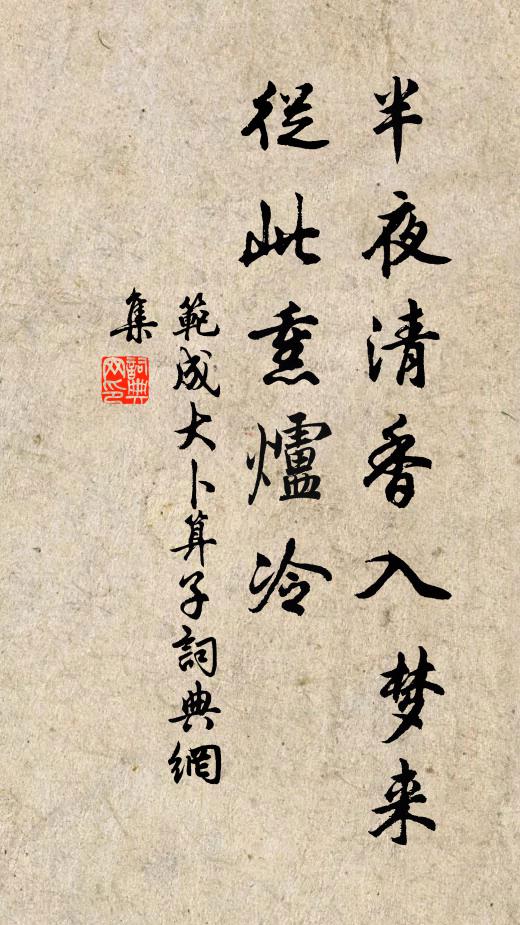 半夜清香入梦来
從此熏爐冷
範成大卜算子詞典網
集
詞典
网印